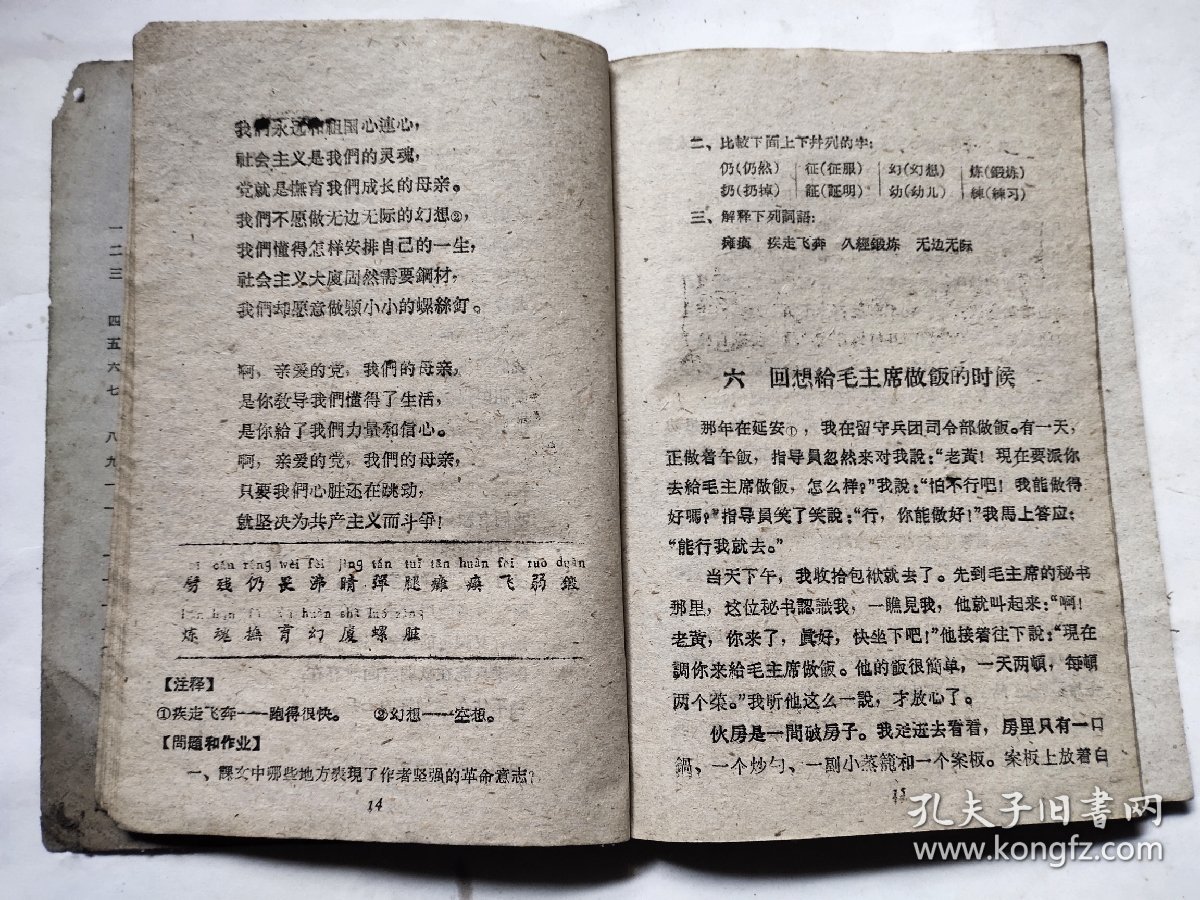 我們永远和祖国心連心，
社会主义是我們的灵魂，
党就是撫育我們成长的母亲。
我們不愿做无边无际的幻想②，
我們懂得怎样安排自己的一生，
社会主义大廈固然需要鋼材，
我們却愿意做顆小小的螺絲釘。
啊，亲爱的党，我們的母亲，
是你敎导我們懂得了生活，
是你給了我們力量和信心。
啊，亲爱的党，我們的母亲，
只要我們心脏还在跳动，
就坚决为共产主义而斗爭！
cán réng wèi fèi jīng tán tuǐ tān huàn fēi ruò duàn
劈 残 仍 畏 沸 睛 弹 腿 癱 瘓 飞 弱 鍛
炼 魂 撫 育 幻 廈 螺 脏
【注释】
①疾走飞奔——跑得很快。 ②幻想——空想。
【問題和作业】
一、課文中哪些地方表現了作者坚强的革命意志？
14
一 二 三 四 五 六 七 八 九
二、比較下面上下并列的字：
仍(仍然) 征(征服) 幻(幻想) 炼(鍛炼)
扔(扔掉) 証(証明) 幼(幼儿) 練(練习)
三、解释下列詞語：
癱瘓 疾走飞奔 久經鍛炼 无边无际
六 回想給毛主席做飯的时候
那年在延安①，我在留守兵团司令部做飯。有一天，
正做着午飯，指导員忽然来对我說：“老黃！現在要派你
去給毛主席做飯，怎么样？”我說：“怕不行吧！我能做得
好嗎？”指导員笑了笑說：“行，你能做好！”我馬上答应：
“能行我就去。”
当天下午，我收拾包袱就去了。先到毛主席的秘书
那里，这位秘书認識我，一瞧見我，他就叫起来：“啊！
老黃，你来了，眞好，快坐下吧！”他接着往下說：“現在
調你来給毛主席做飯。他的飯很简单，一天两頓，每頓
两个菜。”我听他这么一說，才放心了。
伙房是一間破房子。我走进去看看，房里只有一口
鍋、一个炒勺、一副小蒸籠和一个案板。案板上放着白
15
孔夫子旧书网
www.kongfz.com